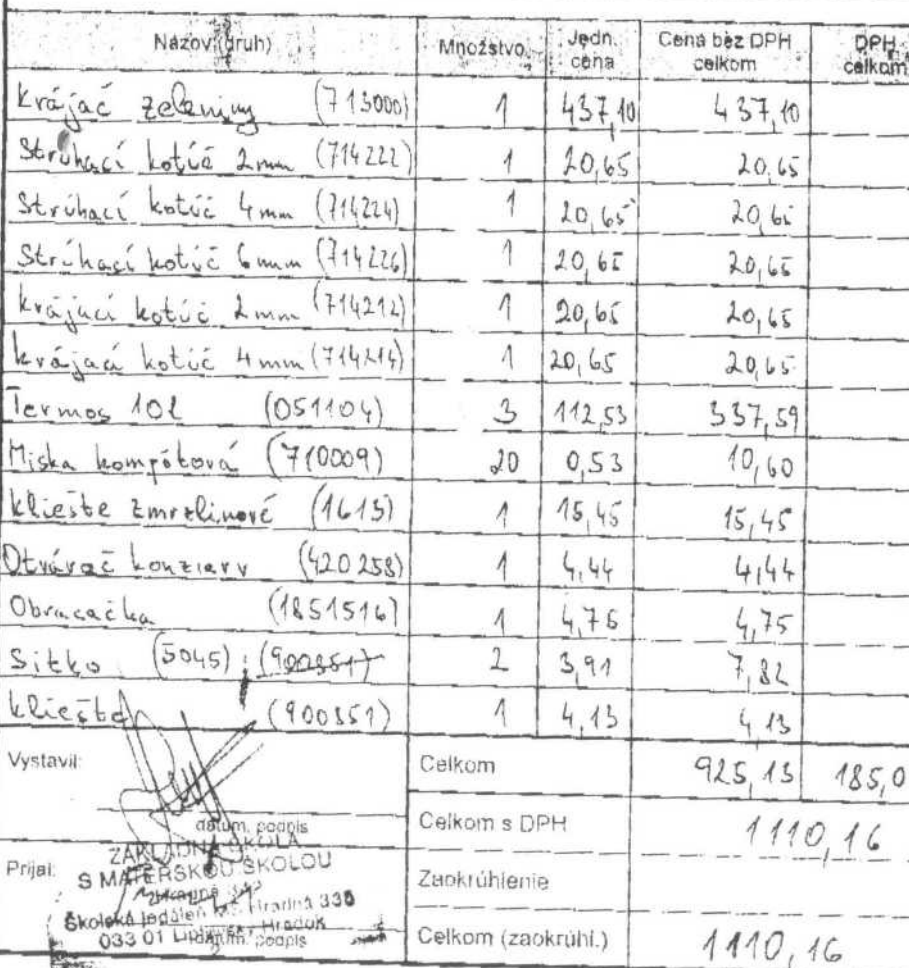 Názov (druh) Množstvo Jedn. cena Cena bez DPH celkom DPH celkom
Krájač zeleniny (713000) 1 437,10 437,10
Strúhací kotúč 2mm (714222) 1 20,65 20,65
Strúhací kotúč 4mm (714224) 1 20,65 20,65
Strúhací kotúč 6mm (714226) 1 20,65 20,65
krájací kotúč 2mm (714212) 1 20,65 20,65
krájací kotúč 4mm (714214) 1 20,65 20,65
Termos 10l (051104) 3 112,53 337,59
Miska kompótová (710009) 20 0,53 10,60
kliešte zmrzlinové (1613) 1 15,45 15,45
Otvárač konzierv (420258) 1 4,44 4,44
Obracačka (1851516) 1 4,75 4,75
Sitko (5045) (900851) 2 3,91 7,82
kliešte (900851) 1 4,13 4,13
Vystavil: Celkom 925,13 185,0
dátum, podpis
Celkom s DPH 1110,16
Prijal: ZÁKLADNÁ ŠKOLA
S MATERSKOU ŠKOLOU
Zaokrúhlenie
Školská jedáleň MŠ Hradná 335
033 01 Liptovský Hrádok
dátum, podpis
Celkom (zaokrúhl.) 1110,16